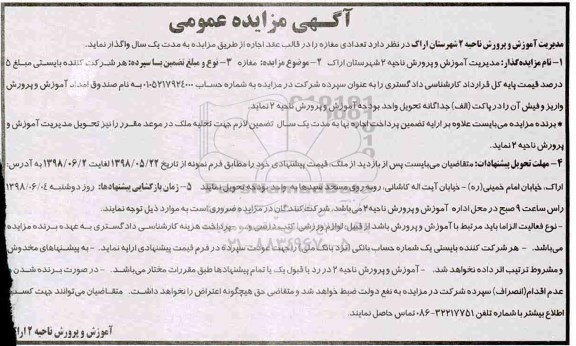 آگهی مزایده عمومی
مدیریت آموزش و پرورش ناحیه ۲ شهرستان اراک در نظر دارد تعدادی مغازه را در قالب عقد اجاره از طریق مزایده به مدت یک سال واگذار نماید.
۱- نام مزایده گذار: مدیریت آموزش و پرورش ناحیه ۲ شهرستان اراک ۲- موضوع مزایده: مغازه ۳- نوع و مبلغ تضمین یا سپرده: هر شرکت کننده بایستی مبلغ ۵
درصد قیمت پایه کل قرارداد کارشناسی دادگستری را به عنوان سپرده شرکت در مزایده به شماره حساب ۰۱۰۵۲۱۷۹۲۴۰۰۰ به نام صندوق امداد آموزش و پرورش
واریز و فیش آن را در پاکت (الف) جداگانه تحویل واحد بودجه آموزش و پرورش ناحیه ۲ نماید.
* برنده مزایده می‌بایست علاوه بر ارایه تضمین پرداخت اجاره بها به مدت یک سال تضمین لازم جهت تخلیه ملک در موعد مقرر را نیز تحویل مدیریت آموزش و
پرورش ناحیه ۲ نماید.
۴- مهلت تحویل پیشنهادات: متقاضیان می‌بایست پس از بازدید از ملک، قیمت پیشنهادی خود را مطابق فرم نمونه از تاریخ ۱۳۹۸/۰۵/۲۲ لغایت ۱۳۹۸/۰۶/۲ به آدرس:
اراک، خیابان امام خمینی(ره) - خیابان آیت اله کاشانی، روبه روی مسجد سیدها به واحد بودجه تحویل نمایند ۵- زمان بازگشایی پیشنهادها: روز دوشنبه ۱۳۹۸/۰۶/۰۴
راس ساعت ۹ صبح در محل اداره آموزش و پرورش ناحیه ۲ می‌باشد. شرکت کنندگان در مزایده ضروری است به موارد ذیل توجه نمایند.
- نوع فعالیت الزاما باید مرتبط با آموزش و پرورش باشد از قبیل: لوازم ورزشی، کتب درسی و... - پرداخت هزینه کارشناسی دادگستری به عهده برنده مزایده
می‌باشد. - هر شرکت کننده بایستی یک شماره حساب بانکی (نزد بانک ملی) را جهت عودت سپرده در فرم قیمت پیشنهادی ارایه نماید. - به پیشنهادهای مخدوش
و مشروط ترتیب اثر داده نخواهد شد. - آموزش و پرورش ناحیه ۲ در رد یا قبول یک یا تمام پیشنهادها طبق مقررات مختار می‌باشد. - در صورت برنده شدن
عدم اقدام(انصراف) سپرده شرکت در مزایده به نفع دولت ضبط خواهد شد و متقاضی حق هیچگونه اعتراض را نخواهد داشت. متقاضیان می‌توانند جهت کسب
اطلاع بیشتر با شماره تلفن ۳۲۲۱۷۷۵۱-۰۸۶ تماس حاصل نمایند.
آموزش و پرورش ناحیه ۲ اراک